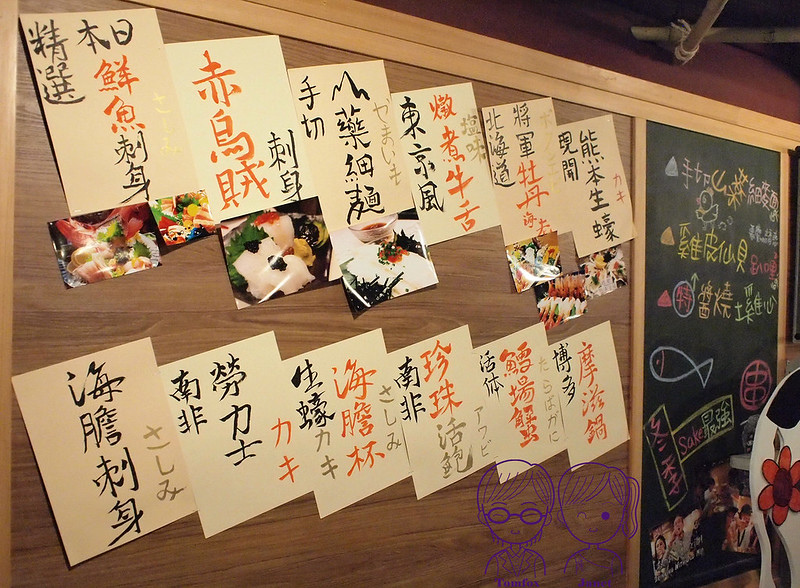 本日
精選
鮮魚刺身
さしみ
赤烏賊
刺身
手切
山藥細麵
やまいも
東京風
燉煮牛舌
塩味
北海道
將軍牡丹海老
現開
熊本生蠔
カキ
海膽刺身
さしみ
南非
勞力士
カキ
生蠔カキ
海膽杯
さしみ
南非
珍珠活鮑
アワビ
活体
鱈場蟹
たらばがに
博多
摩滋鍋
手切山藥細麵
雞皮仙貝
特
醬燒土雞心
串
冬季
sake最強
Tomfox